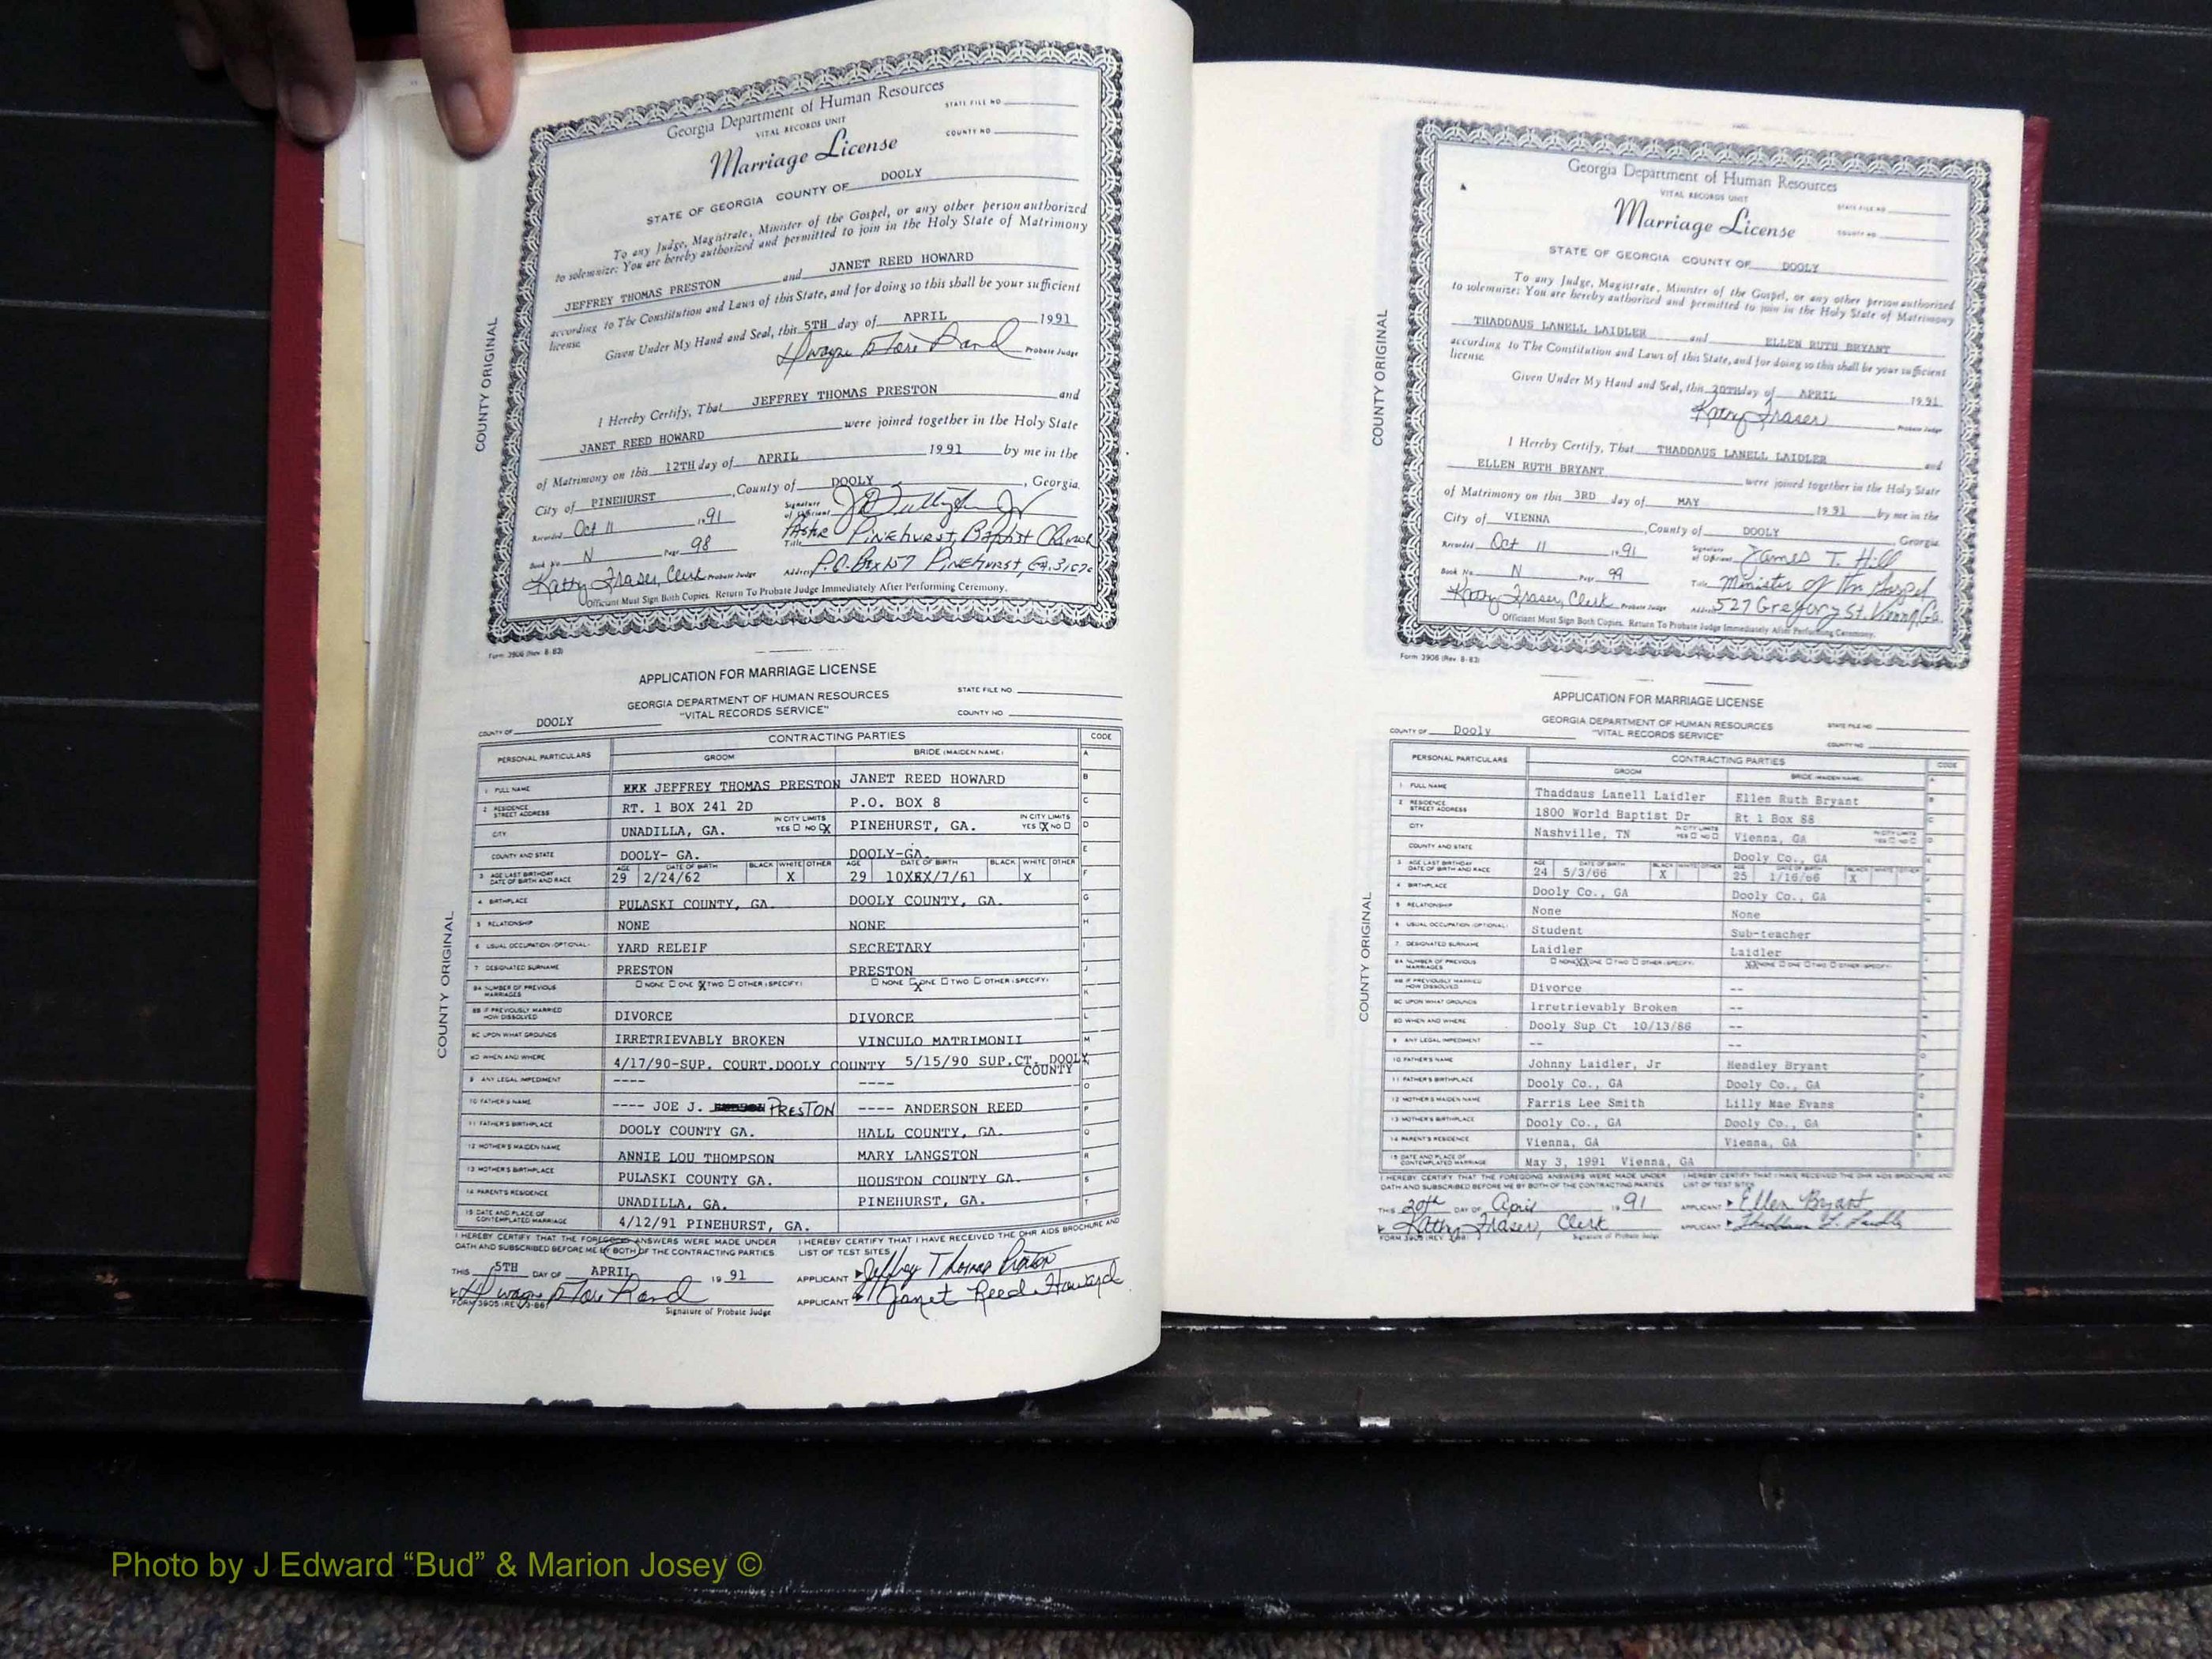 Georgia Department of Human Resources
VITAL RECORDS UNIT
STATE FILE NO
COUNTY NO
Marriage License
STATE OF GEORGIA COUNTY OF DOOLY
To any Judge, Magistrate, Minister of the Gospel, or any other person authorized
to solemnize: You are hereby authorized and permitted to join in the Holy State of Matrimony
JEFFREY THOMAS PRESTON and JANET REED HOWARD
according to The Constitution and Laws of this State, and for doing so this shall be your sufficient
license.
Given Under My Hand and Seal, this 5TH day of APRIL 1991
Probate Judge
I Hereby Certify, That JEFFREY THOMAS PRESTON and
JANET REED HOWARD were joined together in the Holy State
of Matrimony on this 12TH day of APRIL 1991 by me in the
City of PINEHURST, County of DOOLY, Georgia.
Recorded Oct 11 1991 Signature of Officiant
Book No N Page 98 Title Pastor Pinehurst Baptist Church
Kathy Fraser, Clerk Probate Judge Address P.O. Box 157 Pinehurst, GA.
Officiant Must Sign Both Copies. Return To Probate Judge Immediately After Performing Ceremony.
Form 3906 (Rev. 8-83)
COUNTY ORIGINAL
APPLICATION FOR MARRIAGE LICENSE
GEORGIA DEPARTMENT OF HUMAN RESOURCES
"VITAL RECORDS SERVICE"
STATE FILE NO
COUNTY NO
COUNTY OF DOOLY
PERSONAL PARTICULARS CONTRACTING PARTIES CODE
GROOM BRIDE (MAIDEN NAME)
1 FULL NAME JEFFREY THOMAS PRESTON JANET REED HOWARD
2 RESIDENCE STREET ADDRESS RT. 1 BOX 241 2D P.O. BOX 8
CITY UNADILLA, GA. IN CITY LIMITS YES NO X PINEHURST, GA. IN CITY LIMITS YES X NO
COUNTY AND STATE DOOLY- GA. DOOLY-GA.
3 AGE LAST BIRTHDAY DATE OF BIRTH AND RACE AGE 29 DATE OF BIRTH 2/24/62 BLACK WHITE X OTHER AGE 29 DATE OF BIRTH 10XXX/7/61 BLACK WHITE X OTHER
4 BIRTHPLACE PULASKI COUNTY, GA. DOOLY COUNTY, GA.
5 RELATIONSHIP NONE NONE
6 USUAL OCCUPATION (OPTIONAL) YARD RELEIF SECRETARY
7 DESIGNATED SURNAME PRESTON PRESTON
8A NUMBER OF PREVIOUS MARRIAGES NONE ONE X TWO OTHER (SPECIFY) NONE X ONE TWO OTHER (SPECIFY)
8B IF PREVIOUSLY MARRIED HOW DISSOLVED DIVORCE DIVORCE
8C UPON WHAT GROUNDS IRRETRIEVABLY BROKEN VINCULO MATRIMONII
8D WHEN AND WHERE 4/17/90-SUP. COURT.DOOLY COUNTY 5/15/90 SUP.CT. DOOLY COUNTY
9 ANY LEGAL IMPEDIMENT ---- ----
10 FATHER'S NAME ---- JOE J. PRESTON ---- ANDERSON REED
11 FATHER'S BIRTHPLACE DOOLY COUNTY GA. HALL COUNTY, GA.
12 MOTHER'S MAIDEN NAME ANNIE LOU THOMPSON MARY LANGSTON
13 MOTHER'S BIRTHPLACE PULASKI COUNTY GA. HOUSTON COUNTY GA.
14 PARENT'S RESIDENCE UNADILLA, GA. PINEHURST, GA.
15 DATE AND PLACE OF CONTEMPLATED MARRIAGE 4/12/91 PINEHURST, GA.
I HEREBY CERTIFY THAT THE FOREGOING ANSWERS WERE MADE UNDER I HEREBY CERTIFY THAT I HAVE RECEIVED THE DHR AIDS BROCHURE AND
OATH AND SUBSCRIBED BEFORE ME BY BOTH OF THE CONTRACTING PARTIES. LIST OF TEST SITES
THIS 5TH DAY OF APRIL 1991 APPLICANT Jeffrey Thomas Preston
APPLICANT Janet Reed Howard
Signature of Probate Judge
COUNTY ORIGINAL
Georgia Department of Human Resources
VITAL RECORDS UNIT
STATE FILE NO
COUNTY NO
Marriage License
STATE OF GEORGIA COUNTY OF DOOLY
To any Judge, Magistrate, Minister of the Gospel, or any other person authorized
to solemnize: You are hereby authorized and permitted to join in the Holy State of Matrimony
THADDAUS LANELL LAIDLER and ELLEN RUTH BRYANT
according to The Constitution and Laws of this State, and for doing so this shall be your sufficient
license.
Given Under My Hand and Seal, this 20TH day of APRIL 1991
Kathy Fraser Probate Judge
I Hereby Certify, That THADDAUS LANELL LAIDLER and
ELLEN RUTH BRYANT were joined together in the Holy State
of Matrimony on this 3RD day of MAY 1991 by me in the
City of VIENNA, County of DOOLY, Georgia.
Recorded Oct 11 1991 Signature of Officiant James T. Hill
Book No. N Page 99 Title Minister of the Gospel
Kathy Fraser, Clerk Probate Judge Address 527 Gregory St. Vienna, Ga.
Officiant Must Sign Both Copies. Return To Probate Judge Immediately After Performing Ceremony.
Form 3906 (Rev. 8-83)
COUNTY ORIGINAL
APPLICATION FOR MARRIAGE LICENSE
GEORGIA DEPARTMENT OF HUMAN RESOURCES
"VITAL RECORDS SERVICE"
STATE FILE NO
COUNTY NO
COUNTY OF Dooly
PERSONAL PARTICULARS CONTRACTING PARTIES CODE
GROOM BRIDE (MAIDEN NAME)
1 FULL NAME Thaddaus Lanell Laidler Ellen Ruth Bryant
2 RESIDENCE STREET ADDRESS 1800 World Baptist Dr Rt 1 Box 88
CITY Nashville, TN IN CITY LIMITS YES NO Vienna, GA IN CITY LIMITS YES NO
COUNTY AND STATE Dooly Co., GA
3 AGE LAST BIRTHDAY DATE OF BIRTH AND RACE AGE 24 DATE OF BIRTH 5/3/66 BLACK X WHITE OTHER AGE 25 DATE OF BIRTH 1/16/66 BLACK X WHITE OTHER
4 BIRTHPLACE Dooly Co., GA Dooly Co., GA
5 RELATIONSHIP None None
6 USUAL OCCUPATION (OPTIONAL) Student Sub-teacher
7 DESIGNATED SURNAME Laidler Laidler
8A NUMBER OF PREVIOUS MARRIAGES NONE XX ONE TWO OTHER (SPECIFY) XX NONE ONE TWO OTHER (SPECIFY)
8B IF PREVIOUSLY MARRIED HOW DISSOLVED Divorce --
8C UPON WHAT GROUNDS Irretrievably Broken --
8D WHEN AND WHERE Dooly Sup Ct 10/13/86 --
9 ANY LEGAL IMPEDIMENT --
10 FATHER'S NAME Johnny Laidler, Jr Hendley Bryant
11 FATHER'S BIRTHPLACE Dooly Co., GA Dooly Co., GA
12 MOTHER'S MAIDEN NAME Farris Lee Smith Lilly Mae Evans
13 MOTHER'S BIRTHPLACE Dooly Co., GA Dooly Co., GA
14 PARENT'S RESIDENCE Vienna, GA Vienna, GA
15 DATE AND PLACE OF CONTEMPLATED MARRIAGE May 3, 1991 Vienna, GA
I HEREBY CERTIFY THAT THE FOREGOING ANSWERS WERE MADE UNDER I HEREBY CERTIFY THAT I HAVE RECEIVED THE DHR AIDS BROCHURE AND
OATH AND SUBSCRIBED BEFORE ME BY BOTH OF THE CONTRACTING PARTIES LIST OF TEST SITES
THIS 20th DAY OF April 1991 APPLICANT Ellen Bryant
Kathy Fraser, Clerk APPLICANT
Signature of Probate Judge
COUNTY ORIGINAL
Photo by J Edward “Bud” & Marion Josey ©